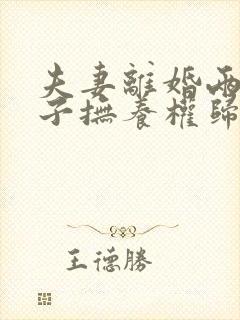 夫妻離婚兩
子撫養權歸
王德勝